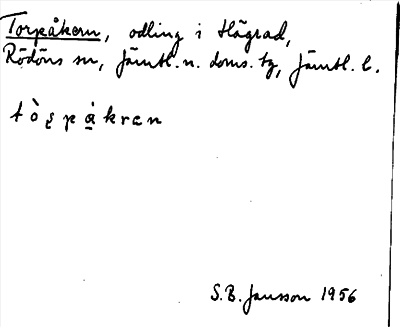 Torpåkern, odling i Hägrad,
Rödöns sn, Jämtl. n. doms. tg, Jämtl. l.
tòʂpåkrɛn
S.B. Jansson 1956